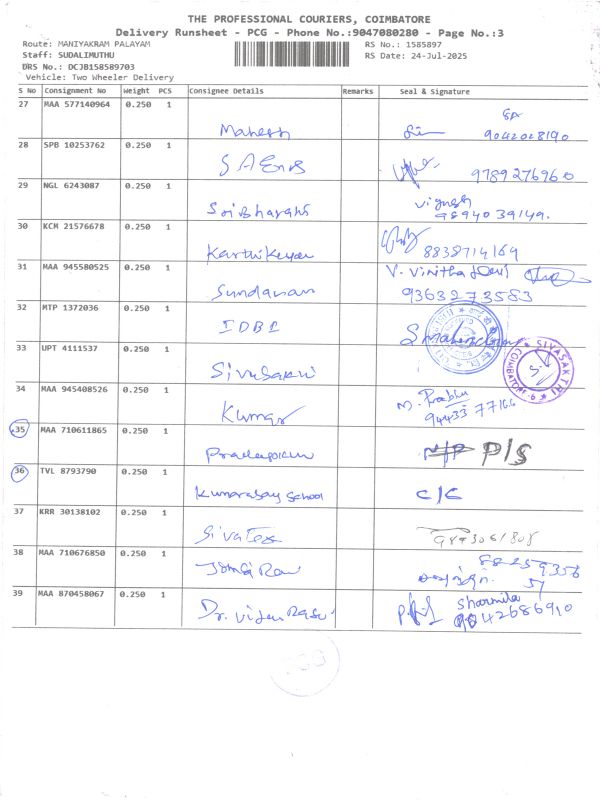 THE PROFESSIONAL COURIERS, COIMBATORE
Delivery Runsheet - PCG - Phone No.:9047080280 - Page No.:3
Route: MANIYAKRAM PALAYAM
RS No.: 1585897
Staff: SUDALIMUTHU
RS Date: 24-Jul-2025
DRS No.: DCJB158589703
Vehicle: Two Wheeler Delivery
S No Consignment No Weight PCS Consignee Details Remarks Seal & Signature
27 MAA 577140964 0.250 1
Mahesh 9042028190
28 SPB 10253762 0.250 1
S A Enns 9789276960
29 NGL 6243087 0.250 1
Sri Bharathi Vignesh
9894039149.
30 KCM 21576678 0.250 1
Karthikeyan 8838714164
31 MAA 945580525 0.250 1 V. Vinitha Devi
Sundaram 9363273583
32 MTP 1372036 0.250 1
IDBI
33 UPT 4111537 0.250 1
SIVASAKTHI
COIMBATORE-6
Sivasakthi
34 MAA 945408526 0.250 1
M. Prabhu
Kumar 94433 77166
35 MAA 710611865 0.250 1
N/P P/S
36 TVL 8793790 0.250 1
School C/C
37 KRR 30138102 0.250 1
Siva Tex
38 MAA 710676850 0.250 1 88259356
57
39 MAA 870458067 0.250 1 Sharmila
Dr. 9042686910
PCG